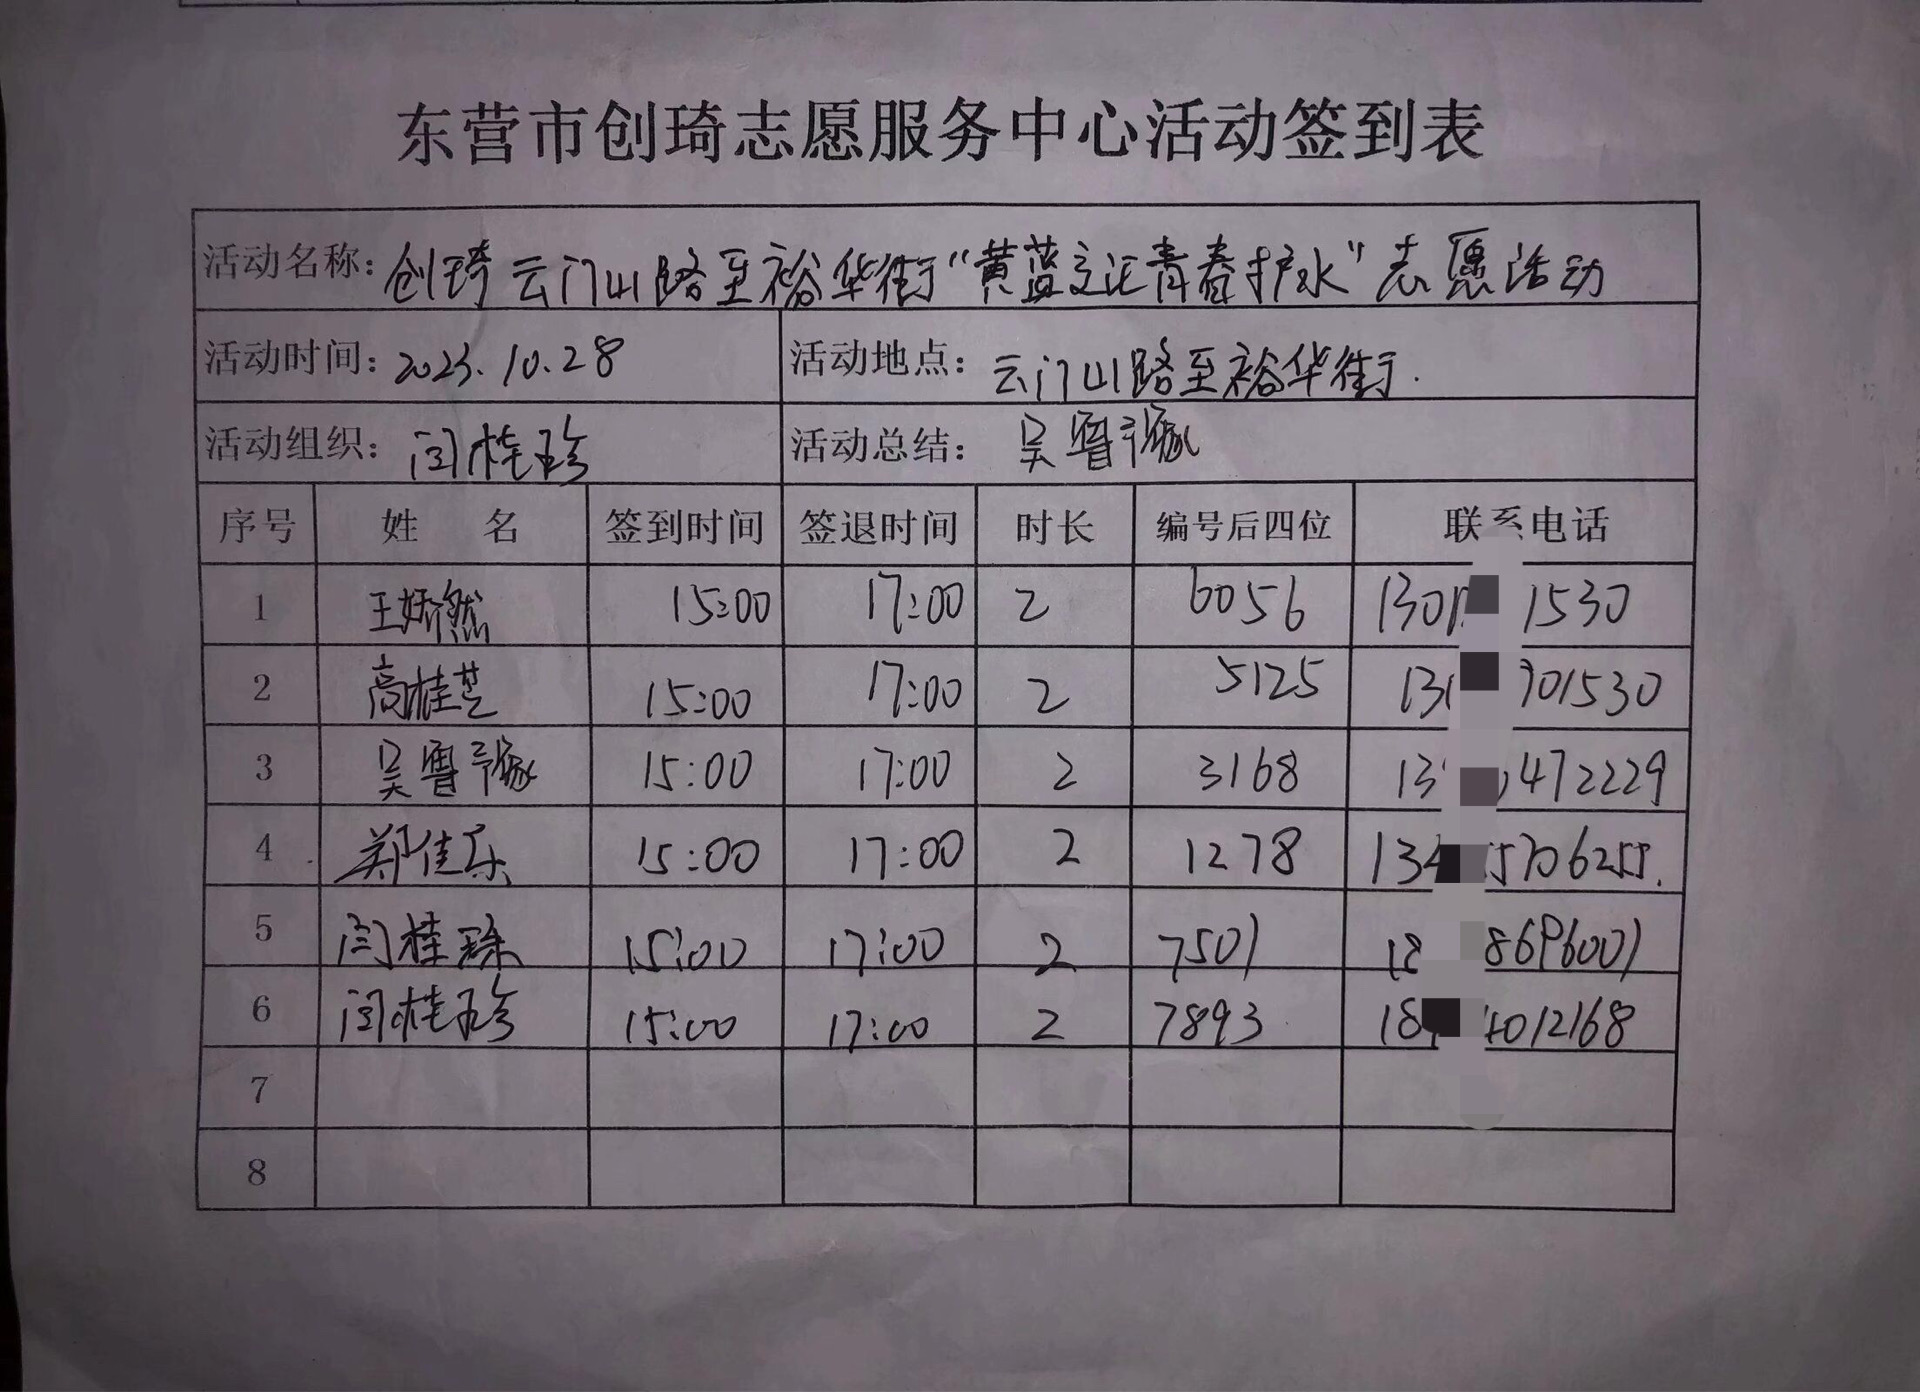 东营市创琦志愿服务中心活动签到表
活动名称: 创琦云门山路至裕华街“黄蓝交汇青春护水”志愿活动
活动时间: 2023.10.28 活动地点: 云门山路至裕华街.
活动组织: 闫桂珍 活动总结: 吴鲁豫
序号 姓 名 签到时间 签退时间 时长 编号后四位 联系电话
1 王娇然 15:00 17:00 2 6056 1301 1530
2 高桂芝 15:00 17:00 2 5125 13 901530
3 吴鲁豫 15:00 17:00 2 3168 13 472229
4 郑佳乐 15:00 17:00 2 1278 134 5706255.
5 闫桂琛 15:00 17:00 2 7501 18 8696001
6 闫桂珍 15:00 17:00 2 7893 18 4012168
7
8